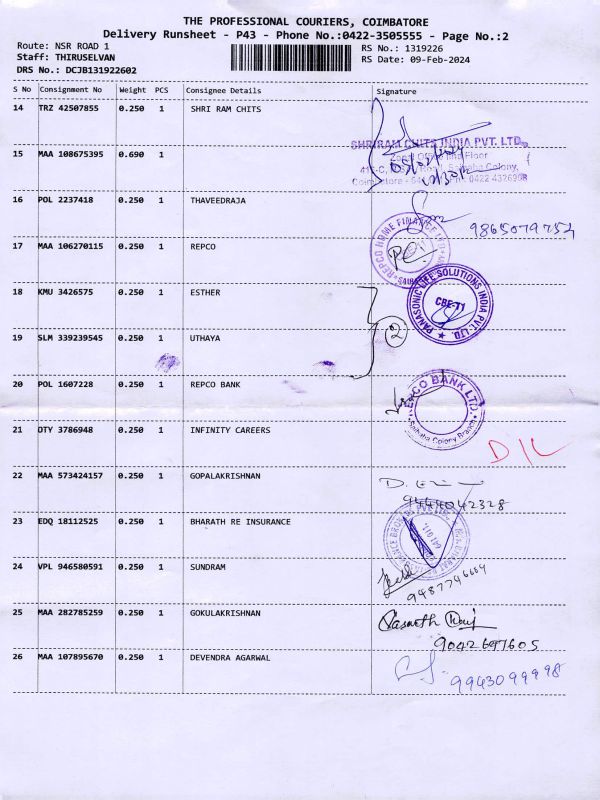 THE PROFESSIONAL COURIERS, COIMBATORE
Delivery Runsheet - P43 - Phone No.:0422-3505555 - Page No.:2
Route: NSR ROAD 1
RS No.: 1319226
Staff: THIRUSELVAN
RS Date: 09-Feb-2024
DRS No.: DCJB131922602
S No Consignment No Weight PCS Consignee Details Signature
14 TRZ 42507855 0.250 1 SHRI RAM CHITS
SHRIRAM CHITS INDIA PVT. LTD.,
15 MAA 108675395 0.690 1
16 POL 2237418 0.250 1 THAVEEDRAJA
9865079754
17 MAA 106270115 0.250 1 REPCO
REPCO HOME FINANCE LTD
18 KMU 3426575 0.250 1 ESTHER
PANASONIC LIFE SOLUTIONS INDIA PVT. LTD.
CBE-T1
19 SLM 339239545 0.250 1 UTHAYA
2
20 POL 1607228 0.250 1 REPCO BANK
REPCO BANK LTD.
Saibaba Colony Branch
21 OTY 3786948 0.250 1 INFINITY CAREERS
D/L
22 MAA 573424157 0.250 1 GOPALAKRISHNAN
9444042328
23 EDQ 18112525 0.250 1 BHARATH RE INSURANCE
24 VPL 946580591 0.250 1 SUNDRAM
25 MAA 282785259 0.250 1 GOKULAKRISHNAN
26 MAA 107895670 0.250 1 DEVENDRA AGARWAL
9943099998